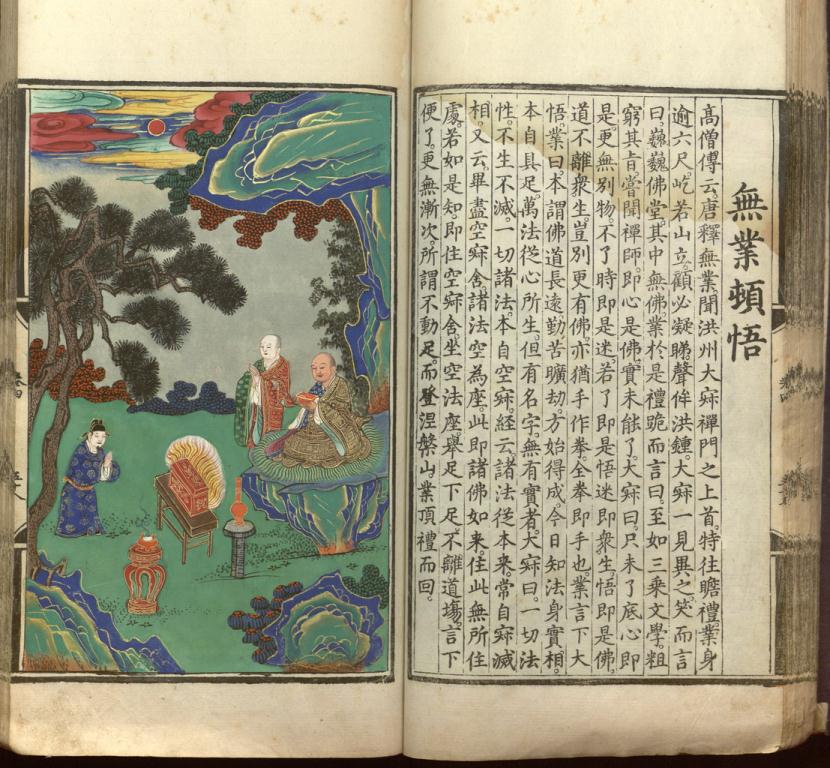 無業頓悟
高僧傳云。唐釋無業。聞洪州大寂禪門之上首。特往瞻禮。業身
逾六尺。屹若山立。顧必凝睇。聲侔洪鍾。大寂一見異之。笑而言
曰。巍巍佛堂。其中無佛。業於是禮跪而言曰。至如三乘文學。粗
窮其旨。嘗聞禪師。即心是佛。實未能了。大寂曰。只未了底心即
是。更無別物。不了時即是迷。若了即是悟。迷即衆生。悟即是佛。
道不離衆生。豈別更有佛。亦猶手作拳。全拳即手也。業言下大
悟。業曰。本謂佛道長遠。勤苦曠劫。方始得成。今日知法身實相。
本自具足。萬法從心所生。但有名字。無有實者。大寂曰。一切法
性。不生不滅。一切諸法。本自空寂。經云。諸法從本來。常自寂滅
相。又云。畢盡空寂舍。諸法空為座。此即諸佛如來。住此無所住
處。若如是知。即住空寂舍。坐空法座。舉足下足。不離道場。言下
便了。更無漸次。所謂不動足。而登涅槃山。業頂禮而回。